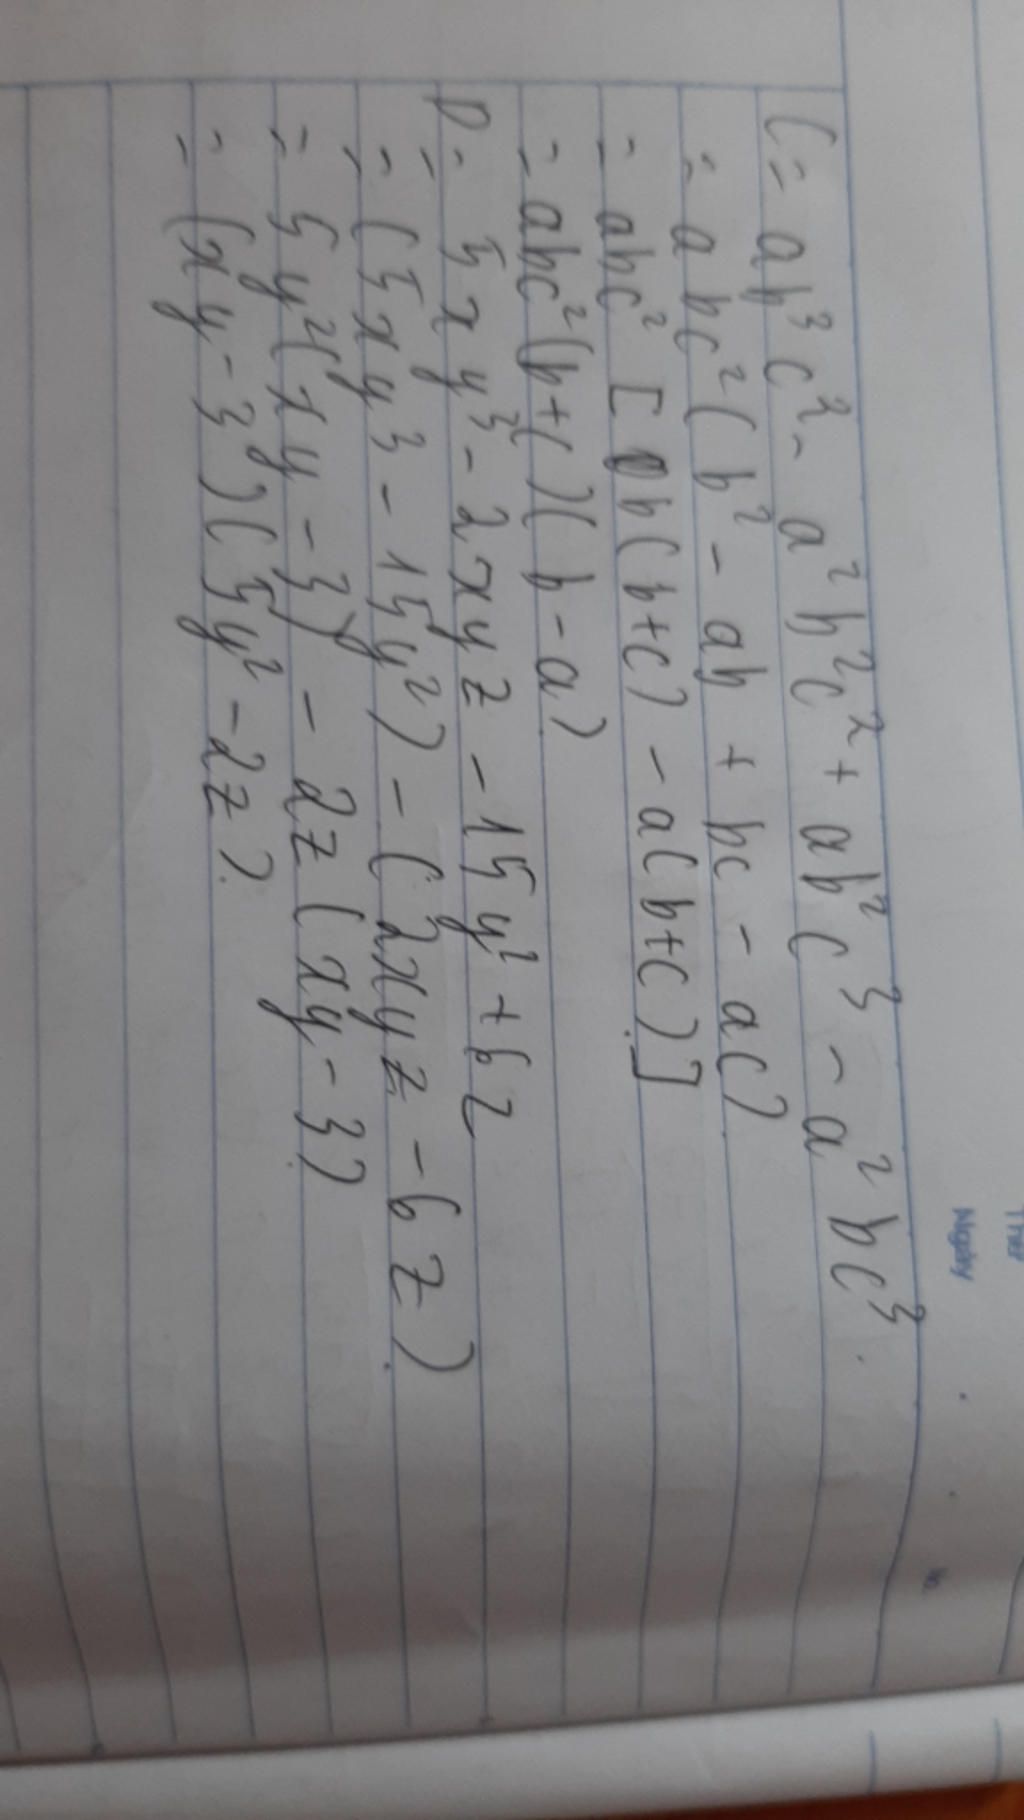 Thứ
Ngày No.
C = ab³c² - a²b²c² + ab²c³ - a²bc³
= abc²(b² - ab + bc - ac)
= abc² [b(b+c) - a(b+c)]
= abc²(b+c)(b-a)
D = 5xy³ - 2xyz - 15y² + 6z
= (5xy³ - 15y²) - (2xyz - 6z)
= 5y²(xy - 3) - 2z(xy - 3)
= (xy - 3)(5y² - 2z)